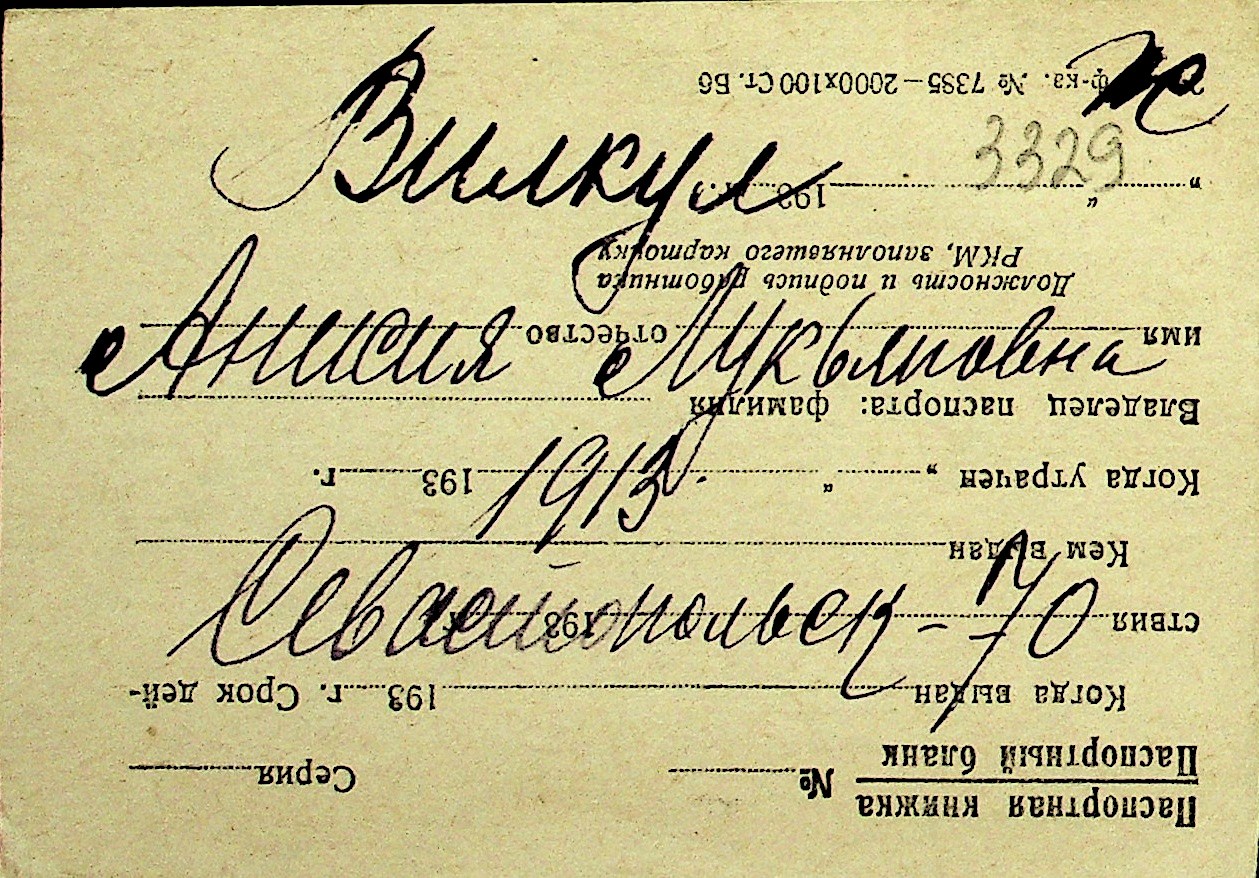 3329
Вилкул
Анисия Лукьяновна
1913
Севастопольск - 70
Паспортная книжка
Паспортный бланк
№ Серия
Когда выдан 193 г. Срок дей-
ствия 193
Кем выдан
Когда утрачен „ “ 193 г.
Владелец паспорта: фамилия
имя отчество
Должность и подпись работника
РКМ, заполнявшего карточку
„ “ 193
ф-ка. № 7385—2000х100 Ст. Бб